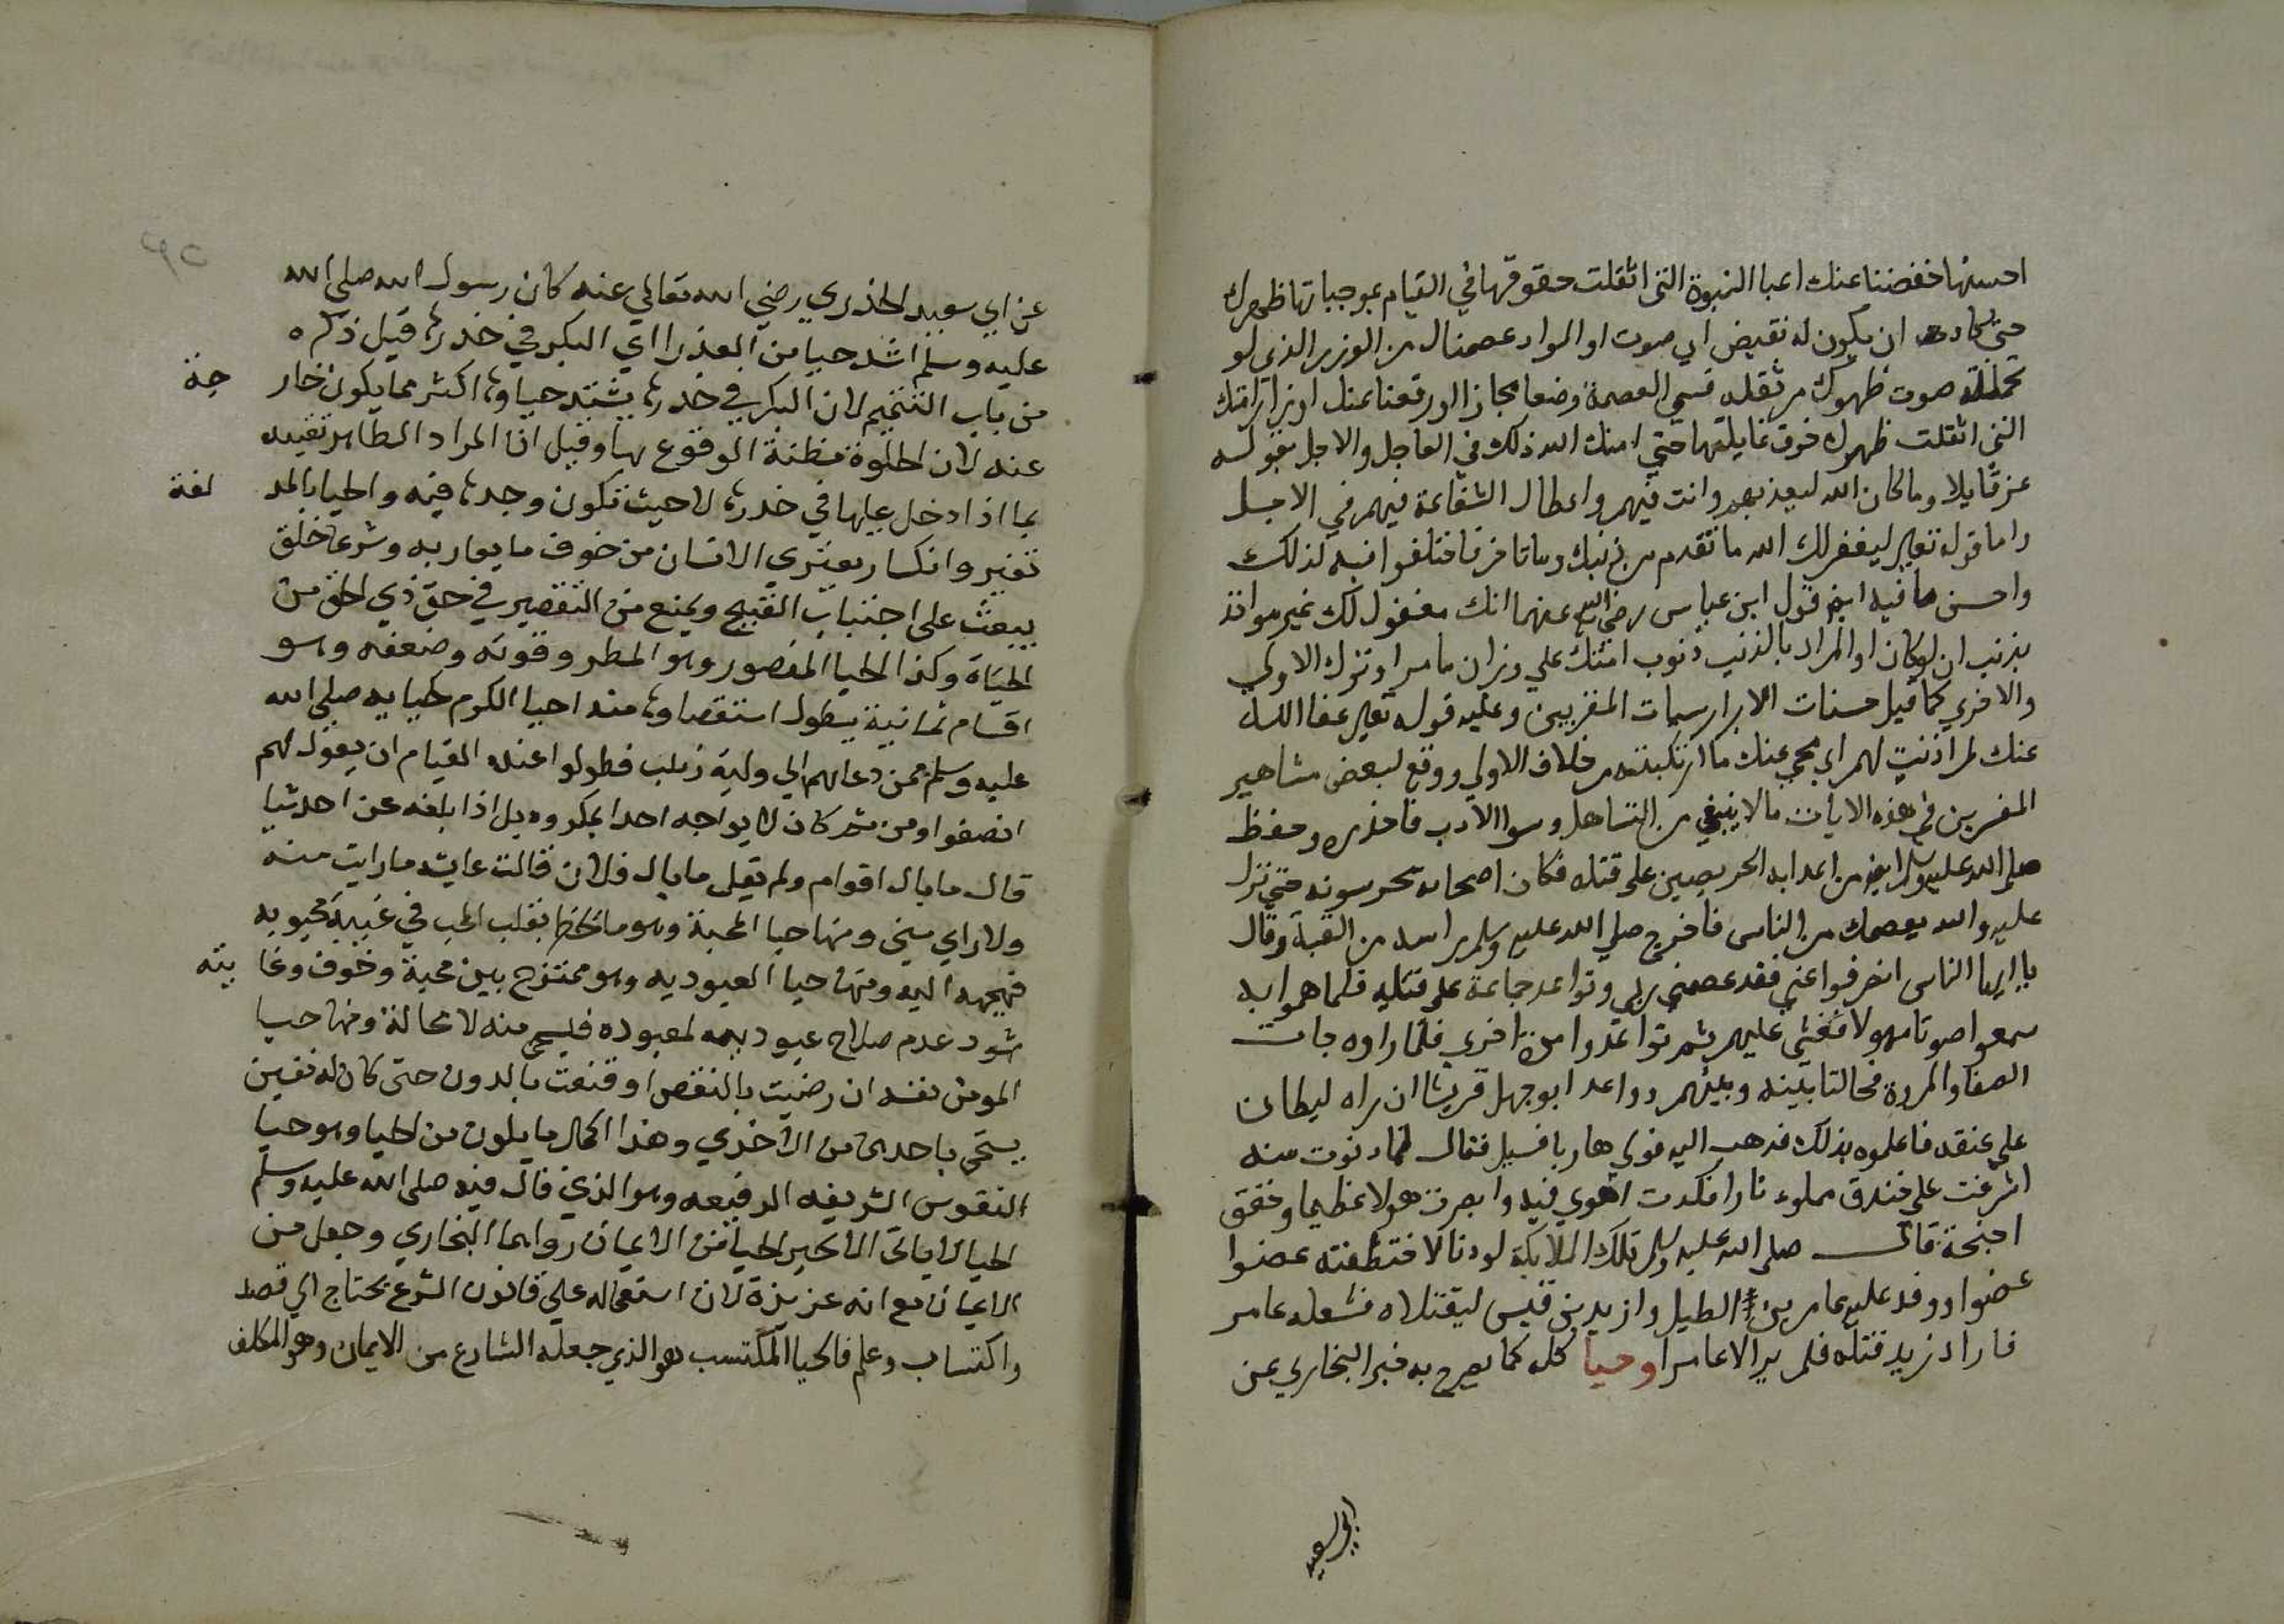 احسنها خفضنا عنك اعبا النبوة التى اثقلت حقوقها في القيام بموجباتها ظهرك
حتى كادت ان يكون له نقيض اي صوت او المراد عصمناك من الوزر الذى لو
تحملته صوت ظهرك من ثقله فسمى العصمة وضعا مجازا او رفعنا عنك اوزار امتك
التى اثقلت ظهرك خوف غايلتها حتى امنك الله ذلك في العاجل والاجل بقوله
عز قايلا وما كان الله ليعذبهم وانت فيهم واعطاك الشفاعة فيهم في الاجل
واما قوله تعالى ليغفر لك الله ما تقدم من ذنبك وما تاخر فاختلفوا فيه كذلك
واحسن ما فيه ايضا قول ابن عباس رضي الله عنهما انك مغفور لك غير مواخذ
بذنب ان لو كان او المراد بالذنب ذنوب امتك علي وزان ما مر او ترك الاولي
والاخري كما قيل حسنات الابرار سيات المقربين وعليه قوله تعالى عفا الله
عنك لم اذنت لهم اي محي عنك ما ارتكبته من خلاف الاولي ووقع لبعض مشاهير
المفسرين في هذه الايات ما لا ينبغي من التساهل وسوا الادب فاحذره وحفظ
صلى الله عليه وسلم ايضا من اعدايه الحريصين على قتله فكان اصحابه تحرسونه حتى نزل
عليه والله يعصمك من الناس فاخرج صلي الله عليه وسلم راسه من القبة وقال
يا ايها الناس انصرفوا عني فقد عصمني ربي وتواعد جماعة على قتله فلما هموا به
سمعوا صوتا مهولا فغشي عليهم ثم تواعدوا مرة اخري فلما راوه جات
الصفا والمروة فحالتا بينه وبينهم وواعد ابوجهل قريشا ان راه ليطان
على عنقه فاعلموه بذلك فذهب اليه فولي هاربا فسيل فقال لما دنوت منه
اشرفت على خندق مملوء نارا فكدت اهوي فيه وابصرت هولا عظيما وخفق
اجنحة قال صلى الله عليه وسلم تلك الملايكة لو دنا لاختطفته عضوا
عضوا ووفد عليه عامر بن الطيل وازيد بن قيس ليقتلاه فشغله عامر
فاراد زيد قتله فلم ير الا عامرا وحيا كله كما يصرح به خبر البخاري عن
ابي سعيد
عن ابي سعيد الخذري رضي الله تعالي عنه كان رسول الله صلى الله
عليه وسلم اشد حيا من العذرا اي البكر في خدرها قيل ذكره
من باب التتميم لان البكر في خدرها يشتد حياوها اكثر مما يكون خارجة
عنه لان الخلوة مظنة الوقوع بها وقيل ان المراد الظاهر تقييده
بما اذا دخل عليها في خدرها لا حيث تكون وحدها فيه والحيا بالمد لغة
تغير وانكسار يعتري الانسان من خوف ما يعار به وشرعا خلق
يبعث على اجتناب القبيح ويمنع من التقصير في حق ذي الحق من
الحياة وكذا الحيا المقصور وهو المطر وقوته وضعفه وهو
اقسام ثمانية يطول استقصاوها منه احيا الكرم كحيايه صلى الله
عليه وسلم ممن دعاهم الي وليمة زينب فطولوا عنده المقيام ان يقول لهم
انصفوا ومن ثم كان لا يواجه احدا بمكروه بل اذا بلغه عن احد شيا
قال ما بال اقوام ولم يقل ما بال فلان قالت عايشه ما رايت منه
ولا راي مني ومنها حيا المحبة وهو ما يخطر بقلب المحب في غيبة محبوبه
فيهيجه اليه ومنها حيا العبوديه وهو ممتزج بين محبة وخوف وغايته
شهود عدم صلاح عبوديته لمعبوده فيستحي منه لا محالة ومنها حيا
المومن نفسه ان رضيت بالنقص او قنعت بالدون حتى كان له نفسين
يستحي باحدهما من الاخري وهذا اكمل ما يكون من الحيا وهو حيا
النفوس الشريفه الرفيعه وهو الذي قال فيه صلى الله عليه وسلم
الحيا لا ياتي الا بخير الحيا من الايمان رواهما البخاري وجعل من
الايمان مع انه عزيزة لان استعماله علي قانون الشرع يحتاج الي قصد
واكتساب وعلم فالحيا المكتسب هو الذي جعله الشارع من الايمان وهو المكلف